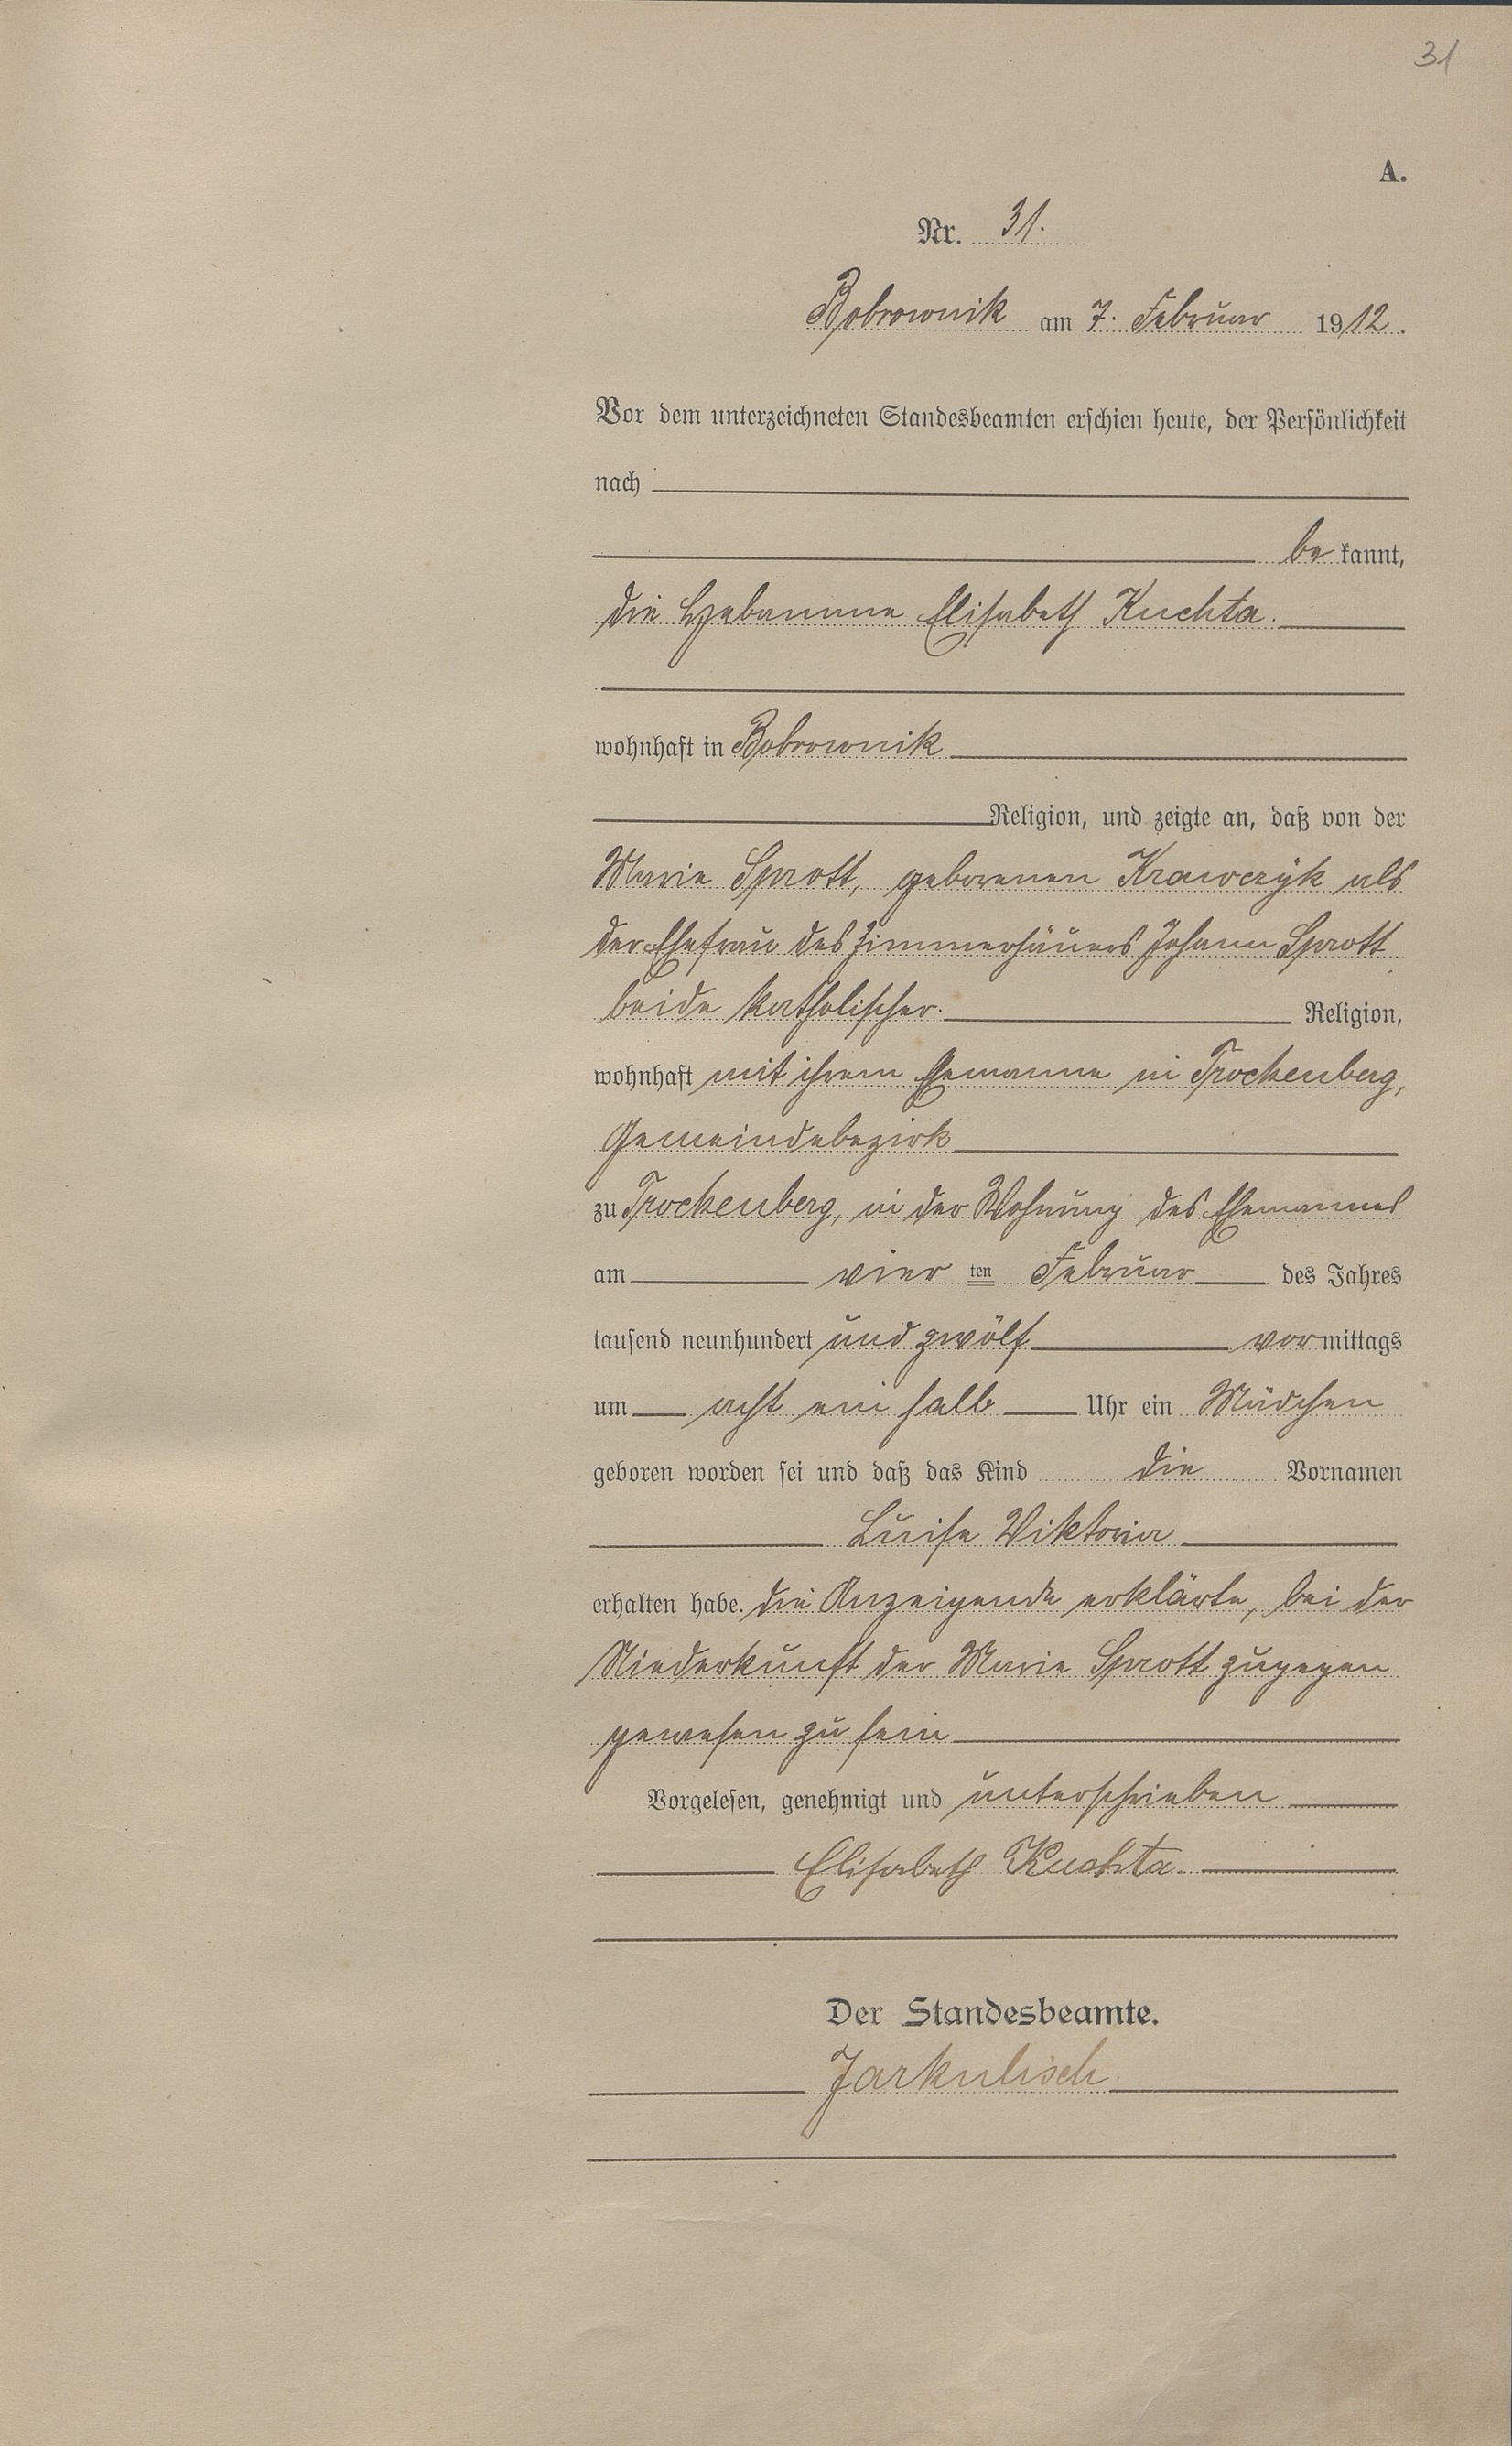 31
A.
Nr. 31.
Bobrownik am 7. Februar 1912.
Vor dem unterzeichneten Standesbeamten erschien heute, der Persönlichkeit
nach
be kannt,
die Hebamme Elisabeth Kuchta.
wohnhaft in Bobrownik
Religion, und zeigte an, daß von der
Marie Sprott, geborenen Krawczyk als
der Ehefrau des Zimmerhäuers Johann Sprott
beide katholischer Religion,
wohnhaft mit ihrem Ehemanne in Trockenberg,
Gemeindebezirk
zu Trockenberg, in der Wohnung des Ehemannes
am vier ten Februar des Jahres
tausend neunhundert und zwölf vormittags
um acht ein halb Uhr ein Mädchen
geboren worden sei und daß das Kind die Vornamen
Luise Viktoria
erhalten habe. Die Anzeigende erklärte, bei der
Niederkunft der Marie Sprott zugegen
gewesen zu sein
Vorgelesen, genehmigt und unterschrieben
Elisabeth Kuchta.
Der Standesbeamte.
Jarkulisch